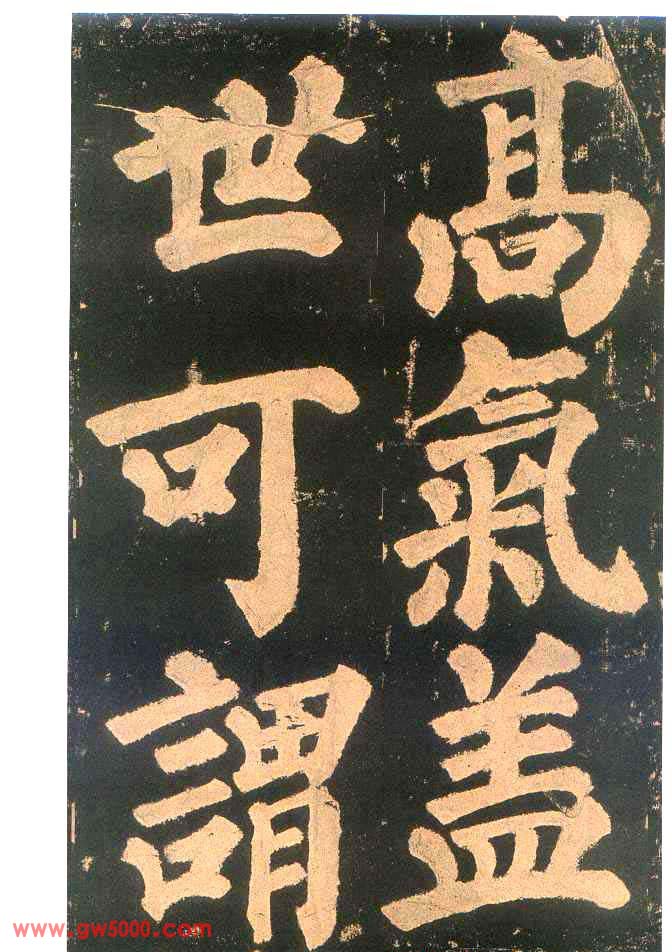 髙氣盖
世可謂
www.gw5000.com